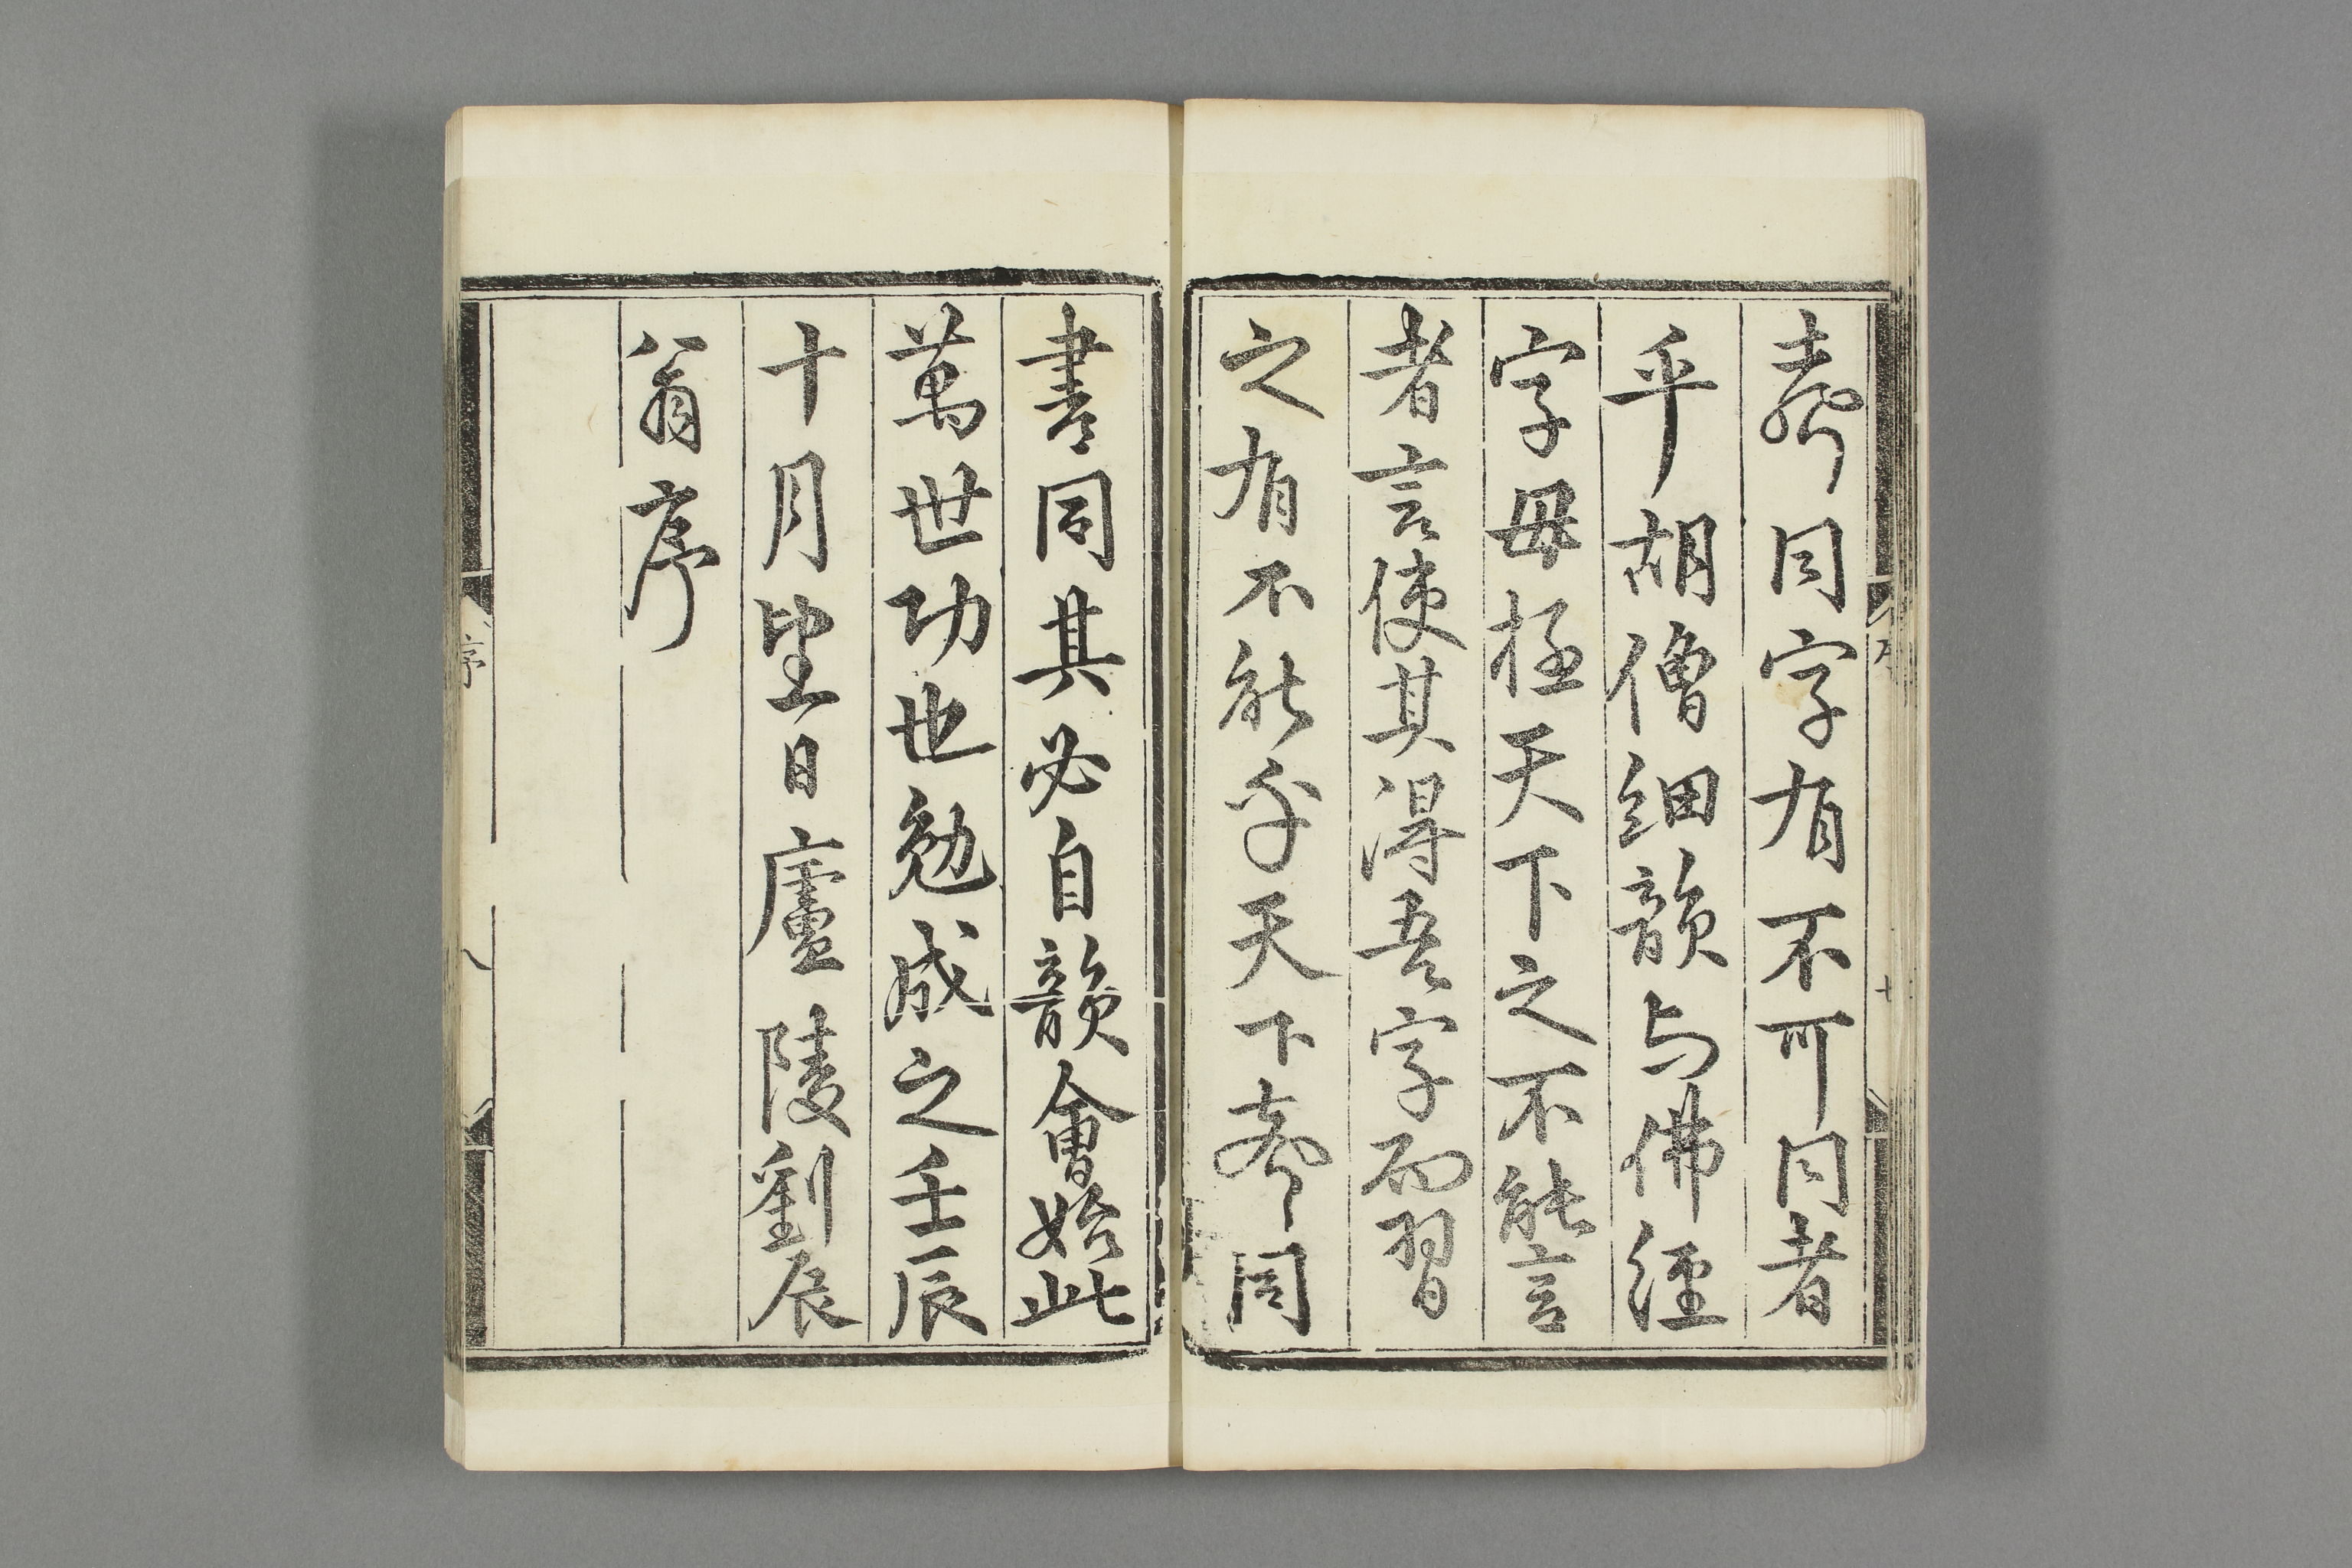 聲同字有不可同者
乎胡僧細韻与佛經
字母極天下之不能言
者言使其得吾字而習
之有不能乎天下聲同
書同其必自韻會始此
萬世功也勉成之壬辰
十月望日廬陵劉辰
翁序
序